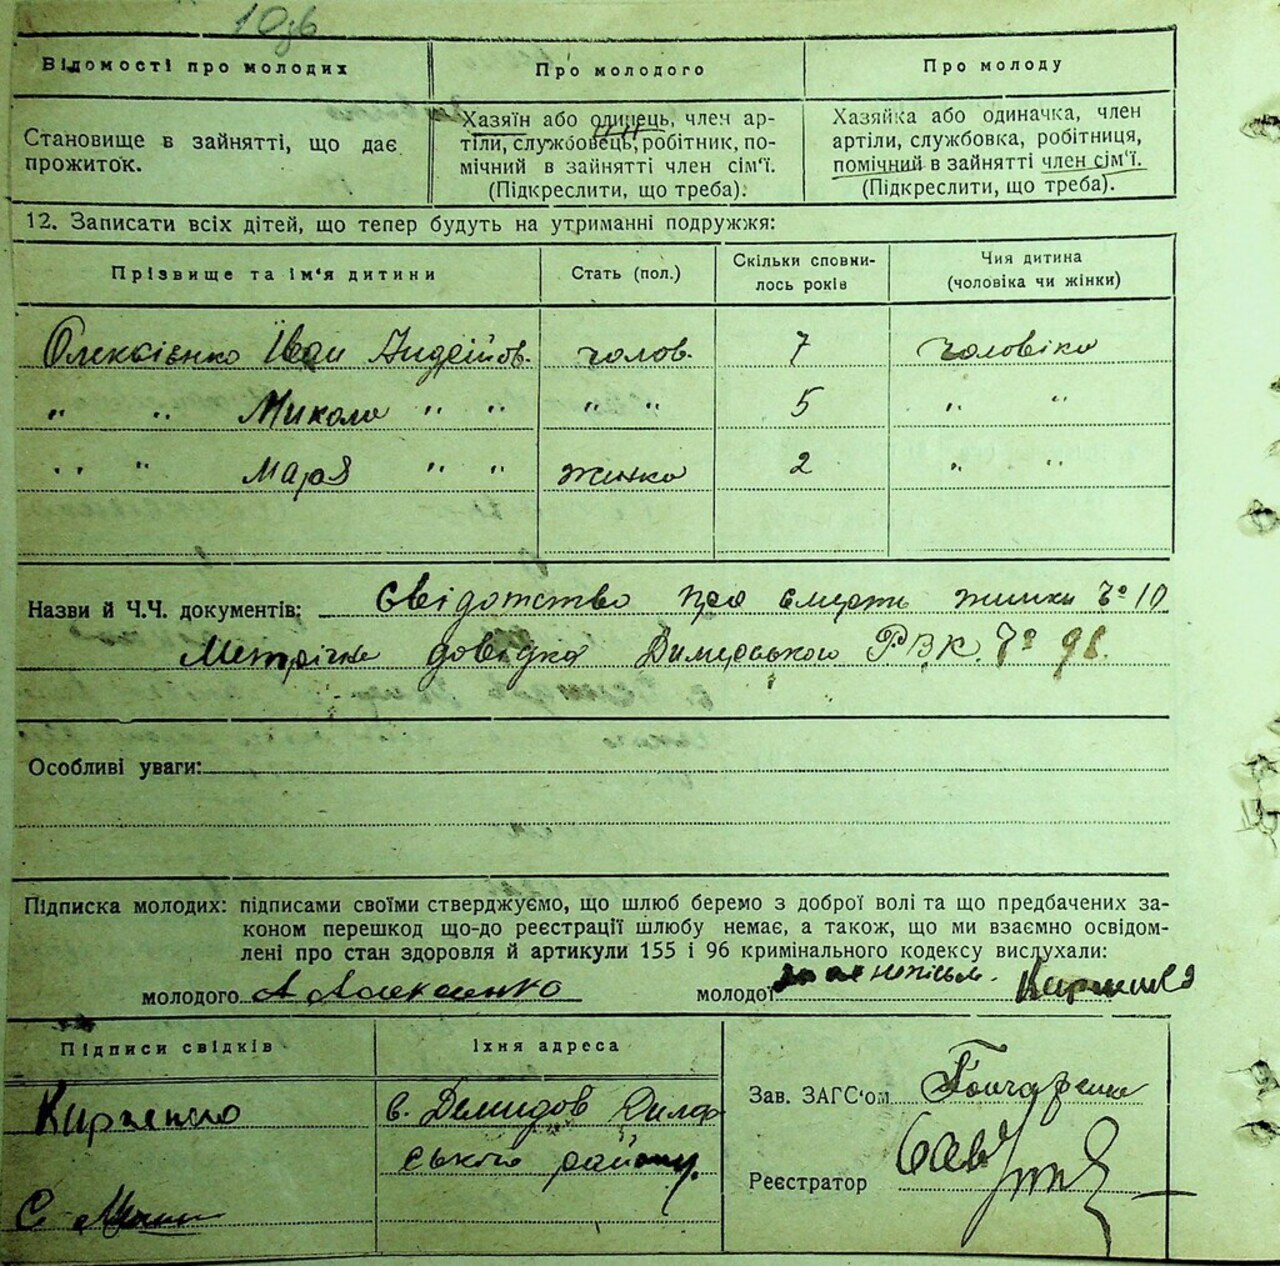 10зв
Відомості про молодих
Про молодого
Про молоду
Становище в зайнятті, що дає
прожиток.
Хазяїн або одинець, член ар-
тіли, службовець, робітник, по-
мічний в зайнятті член сім‘ї.
(Підкреслити, що треба).
Хазяйка або одиначка, член
артіли, службовка, робітниця,
помічний в зайнятті член сім‘ї.
(Підкреслити, що треба).
12. Записати всіх дітей, що тепер будуть на утриманні подружжя:
Прізвище та ім‘я дитини
Стать (пол.)
Скільки сповни-
лось років
Чия дитина
(чоловіка чи жінки)
Олексієнко Іван Андрійов. чолов. 7 чоловіка
" " Микола " " " " 5 " "
" " Марія " " жинка 2 " "
Назви й Ч.Ч. документів: Свідотство про смерть жинки № 10
Метрична довідка Димерського РВК. № 98.
Особливі уваги:
Підписка молодих: підписами своїми стверджуємо, що шлюб беремо з доброї волі та що предбачених за-
коном перешкод що-до реєстрації шлюбу немає, а також, що ми взаємно освідом-
лені про стан здоровля й артикули 155 і 96 кримінального кодексу вислухали:
молодого А Алексиенко молодої за неписьм.
Підписи свідків
Їхня адреса
с. Демидов Димер
ського району.
Зав. ЗАГС‘ом Гончаренко
Реєстратор